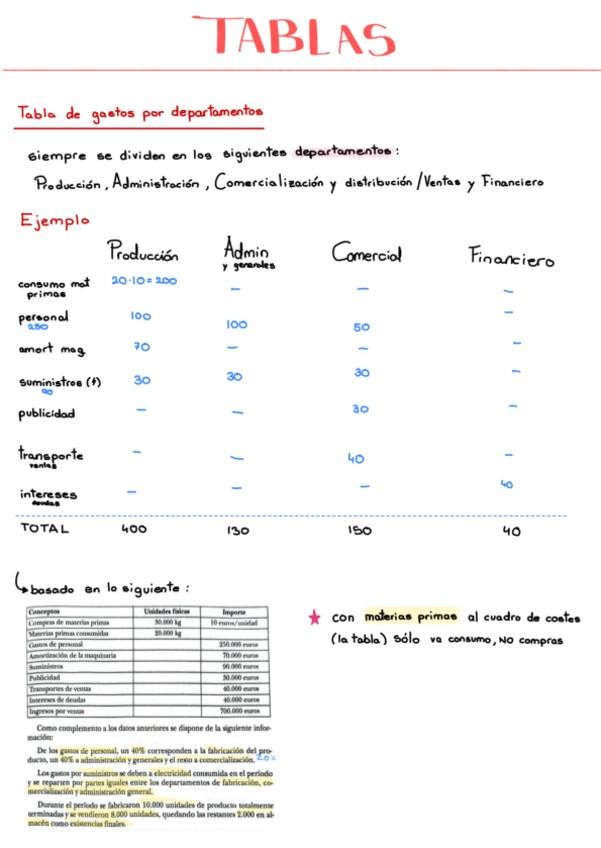 TABLAS
Tabla de gastos por departamentos
siempre se dividen en los siguientes departamentos:
Producción, Administración, Comercialización y distribución/Ventas y Financiero
Ejemplo
Producción Admin y generales Comercial Financiero
consumo mat primas 20·10=200 – – –
personal 250 100 100 50 –
amort maq 70 – – –
suministros (ϟ) 90 30 30 30 –
publicidad – – 30 –
transporte ventas – – 40 –
intereses deudas – – – 40
TOTAL 400 130 150 40
↳ basado en lo siguiente:
Conceptos Unidades físicas Importe
Compras de materias primas 30.000 kg 10 euros/unidad
Materias primas consumidas 20.000 kg
Gastos de personal 250.000 euros
Amortización de la maquinaria 70.000 euros
Suministros 90.000 euros
Publicidad 30.000 euros
Transportes de ventas 40.000 euros
Intereses de deudas 40.000 euros
Ingresos por ventas 700.000 euros
★ con materias primas al cuadro de costes
(la tabla) sólo va consumo, NO compras
Como complemento a los datos anteriores se dispone de la siguiente infor-
mación:
De los gastos de personal, un 40% corresponden a la fabricación del pro-
ducto, un 40% a administración y generales y el resto a comercialización. 20%
Los gastos por suministros se deben a electricidad consumida en el período
y se reparten por partes iguales entre los departamentos de fabricación, co-
mercialización y administración general.
Durante el período se fabricaron 10.000 unidades de producto totalmente
terminadas y se vendieron 8.000 unidades, quedando las restantes 2.000 en al-
macén como existencias finales.